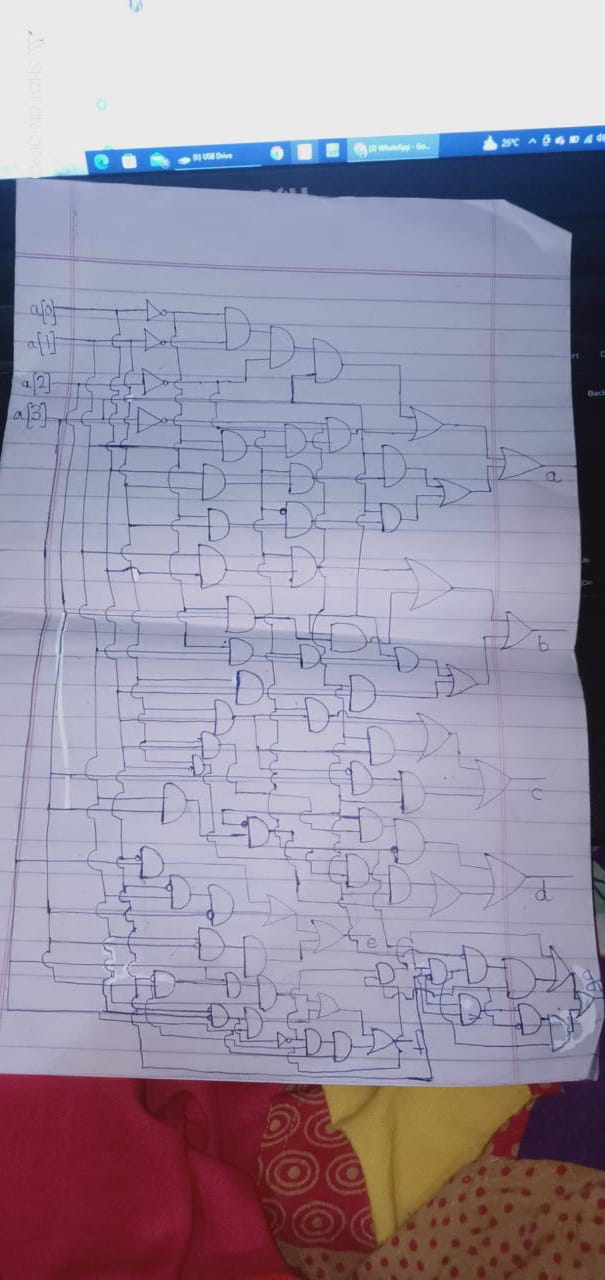 SHOT ON OPPO
(5) USB Drive
(3) WhatsApp - Go...
25°C
a[0]
a[1]
a[2]
a[3]
a
b
c
d
e
f
g